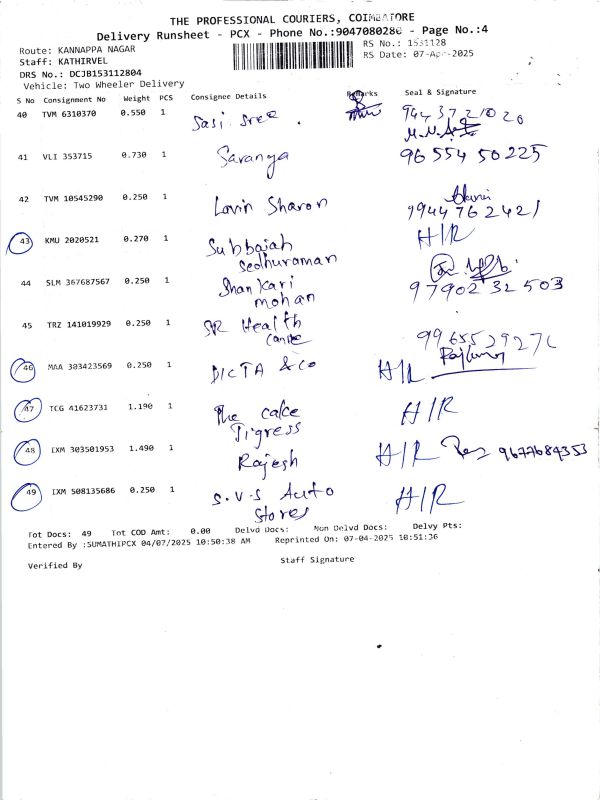 THE PROFESSIONAL COURIERS, COIMBATORE
Delivery Runsheet - PCX - Phone No.:9047080280 - Page No.:4
Route: KANNAPPA NAGAR
RS No.: 1531128
Staff: KATHIRVEL
RS Date: 07-Apr-2025
DRS No.: DCJB153112804
Vehicle: Two Wheeler Delivery
S No Consignment No Weight PCS Consignee Details Remarks Seal & Signature
40 TVM 6310370 0.550 1 Sasi sree . 9443721020
41 VLI 353715 0.730 1 Saranya 9655450225
42 TVM 10545290 0.250 1 Lovin Sharon 9944762421
43 KMU 2020521 0.270 1 Subbaiah H/R
Sedhuraman
44 SLM 367687567 0.250 1 Shankari 9790232503
mohan
45 TRZ 141019929 0.250 1 SR Health
46 MAA 303423569 0.250 1 DICTA & Co H/R
47 TCG 41623731 1.190 1 The cake H/R
Tigress
48 IXM 303501953 1.490 1 Rajesh H/R 9677684353
49 IXM 508135686 0.250 1 S.V.S Auto H/R
Stores
Tot Docs: 49 Tot COD Amt: 0.00 Delvd Docs: Non Delvd Docs: Delvy Pts:
Entered By :SUMATHIPCX 04/07/2025 10:50:38 AM Reprinted On: 07-04-2025 10:51:36
Verified By
Staff Signature